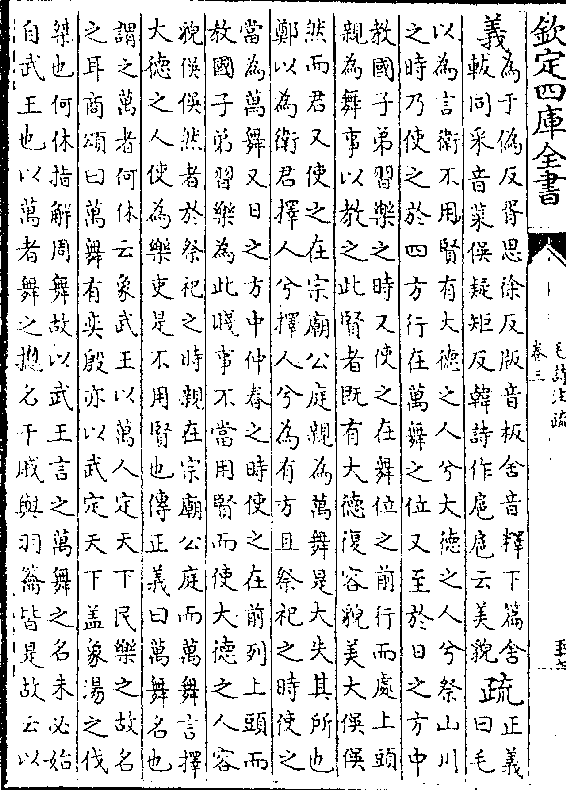 欽定四庫全書
毛詩注疏
卷三
義
為于偽反胥思徐反版音板舍音釋下篇舍
軷同采音菜俁疑矩反韓詩作扈扈云美貌
疏
正義
曰毛
以為言衛不用賢有大德之人兮大德之人兮祭山川
之時乃使之於四方行在萬舞之位又至於日之方中
教國子弟習樂之時又使之在舞位之前行而處上頭
親為舞事以教之此賢者既有大德復容貌美大俁俁
然而君又使之在宗廟公庭親為萬舞是大失其所也
鄭以為衛君擇人兮擇人兮為有方且祭祀之時使之
當為萬舞又日之方中仲春之時使之在前列上頭而
教國子弟習樂為此賤事不當用賢而使大德之人容
貌俁俁然者於祭祀之時親在宗廟公庭而萬舞言擇
大德之人使為樂吏是不用賢也傳正義曰萬舞名也
謂之萬者何休云象武王以萬人定天下民樂之故名
之耳商頌曰萬舞有奕殷亦以武定天下盖象湯之伐
桀也何休指解周舞故以武王言之萬舞之名未必始
自武王也以萬者舞之揔名干戚與羽籥皆是故云以